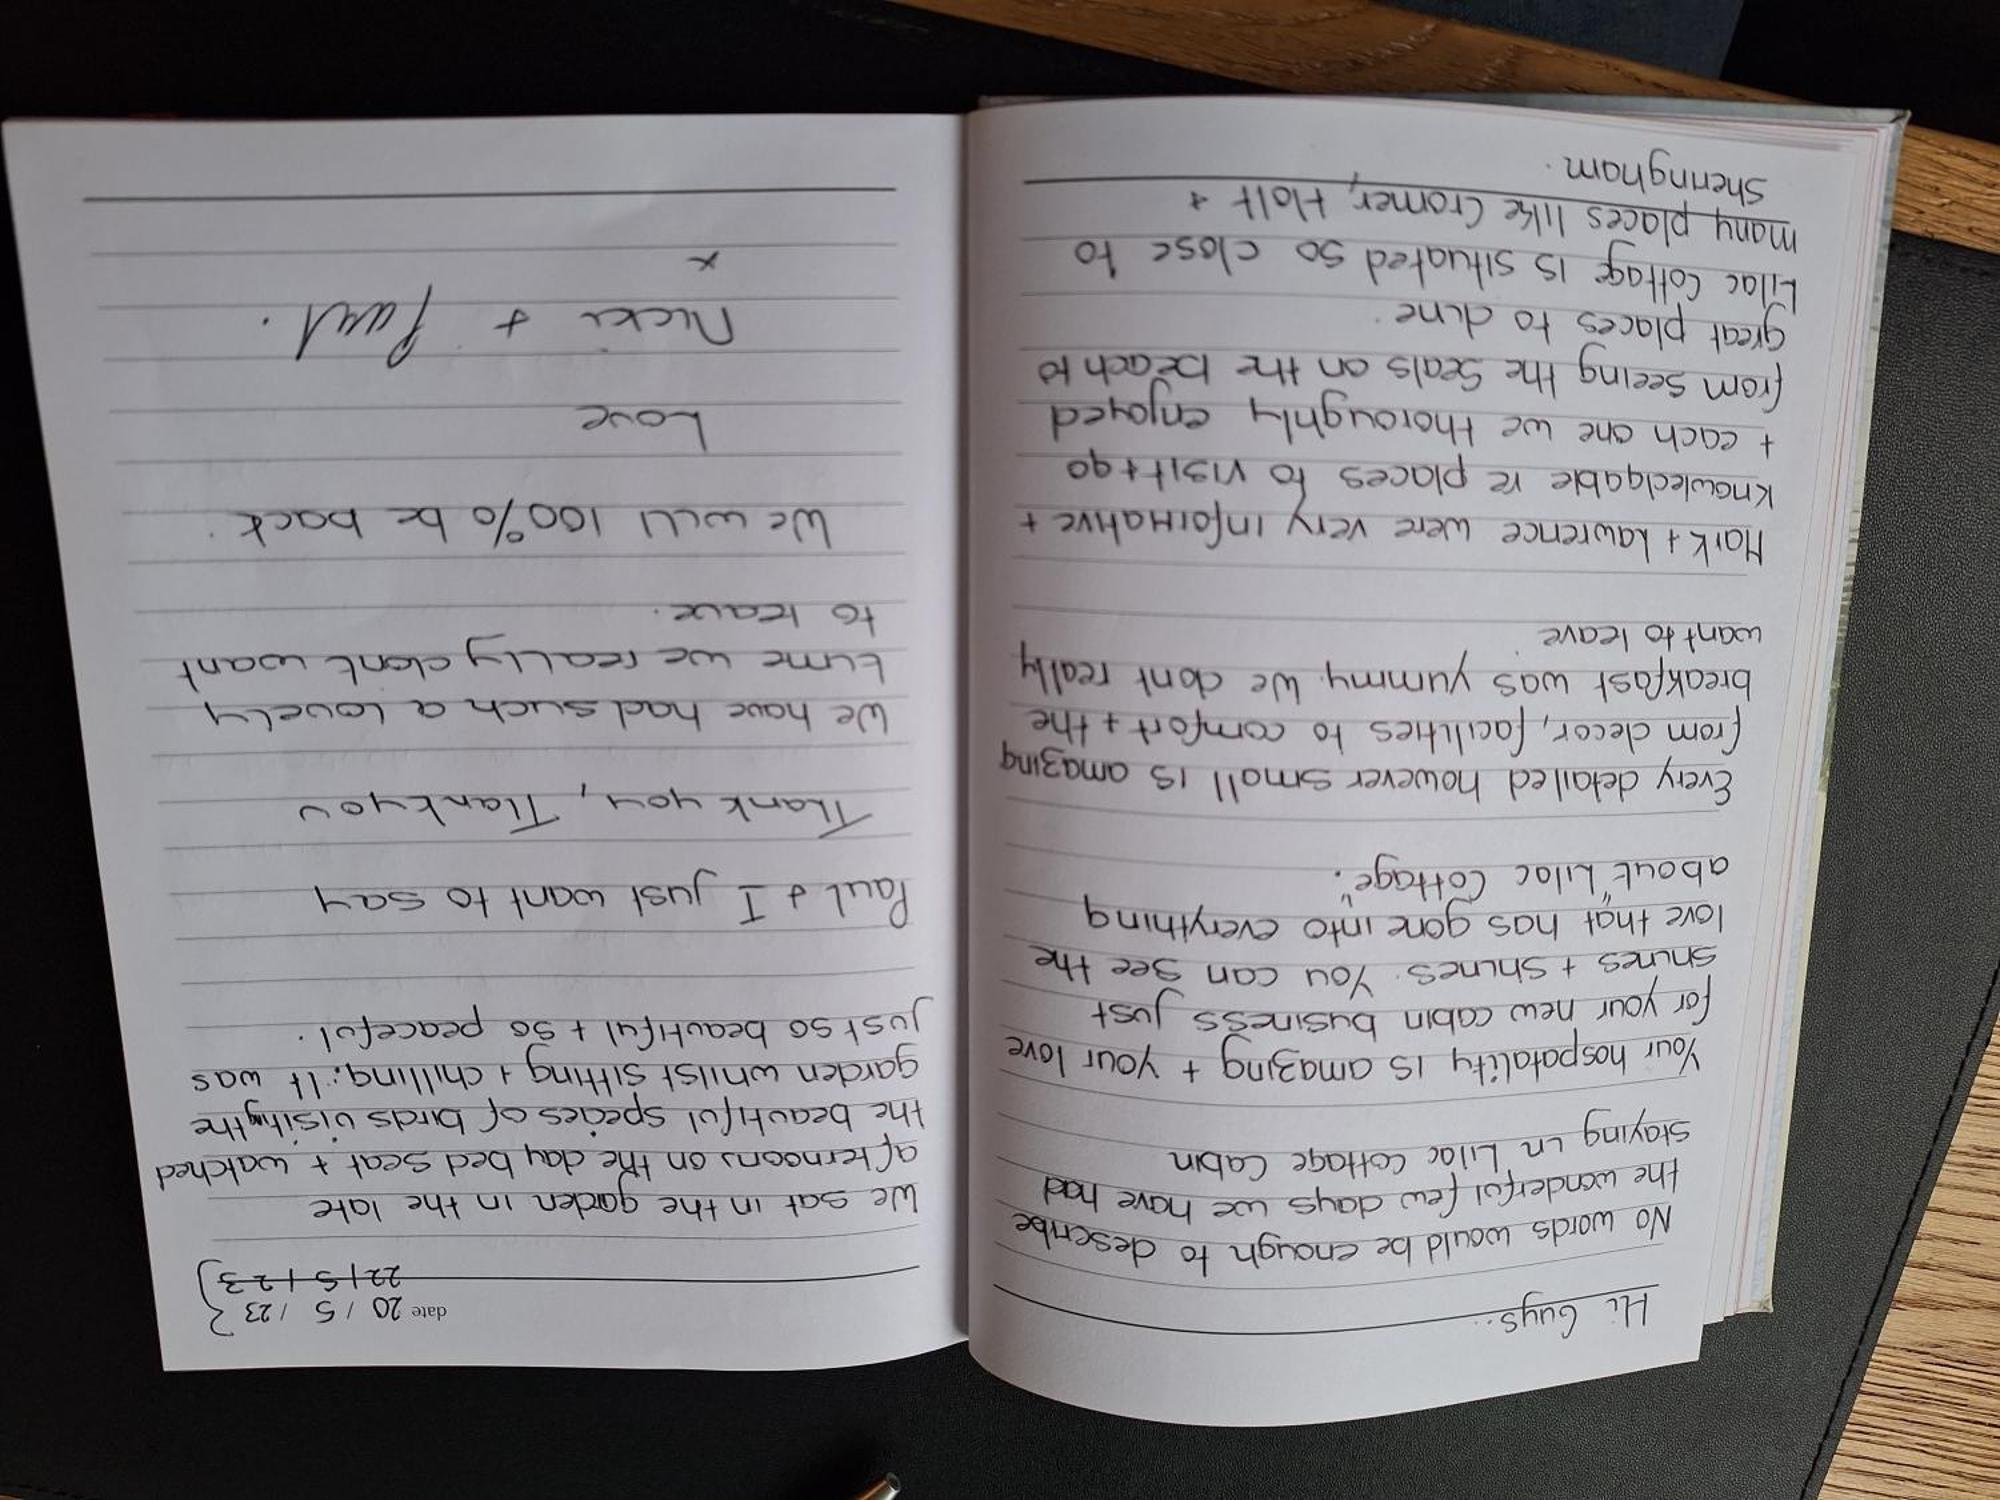 Hi Guys..
No words would be enough to describe
the wonderful few days we have had
staying in Lilac Cottage Cabin
Your hospatality is amazing + your love
for your new cabin business just
shines + shines. You can see the
love that has gone into everything
about "Lilac Cottage".
Every detailed however small is amazing
from decor, facilities to comfort + the
breakfast was yummy. We dont really
want to leave
Mark + Lawrence were very informative +
knowledgable re places to visit + go
+ each one we thoroughly enjoyed
from seeing the seals on the beach to
great places to dine.
Lilac Cottage is situated so close to
many places like Cromer, Holt +
Sheringham.
date 20 / 5 / 23
22 / 5 / 23
We sat in the garden in the late
afternoons on the day bed seat + watched
the beautiful species of birds visiting the
garden whilst sitting + chilling: It was
just so beautiful + so peaceful.
Paul + I just want to say
Thank you, Thank you
We have had such a lovely
time we really dont want
to leave.
We will 100% be back.
Love
Nicki + Paul.
x